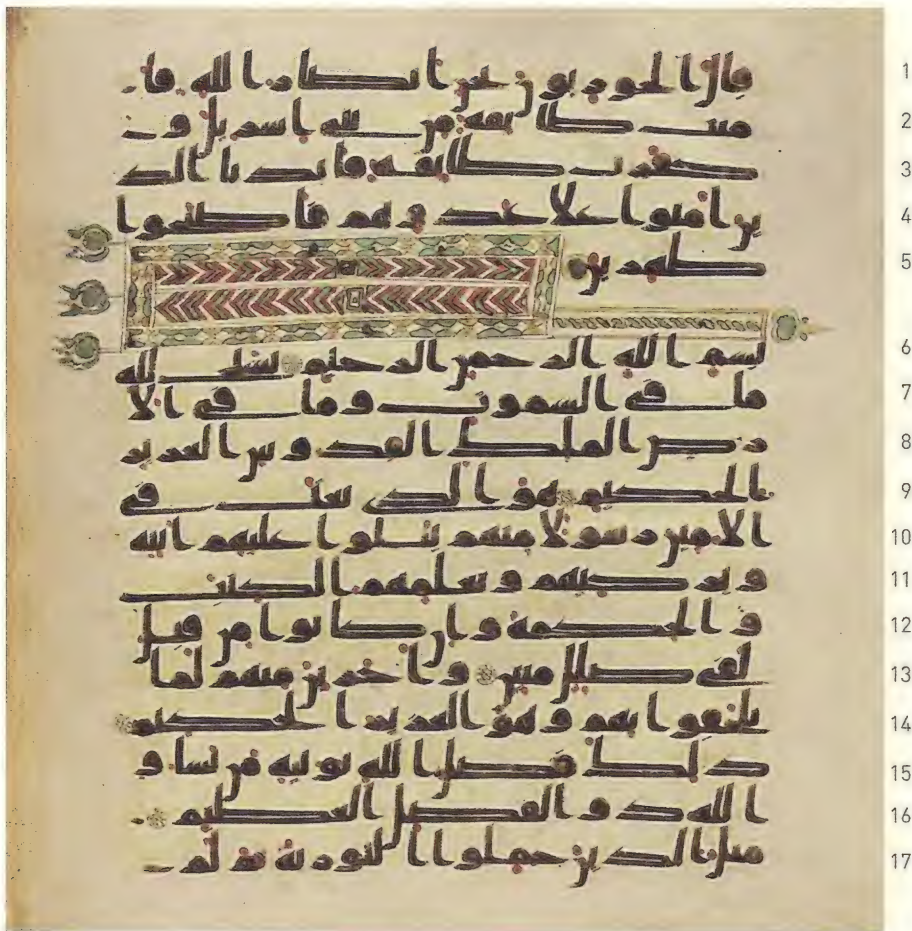 قال الحواريون نحن انصار الله فا 1
منت طايفه من بني اسريل و 2
كفرت طايفه فايدنا الذ 3
ين امنوا علا عدوهم فاصبحوا 4
ظهرين 5
بسم الله الرحمن الرحيم يسبح لله 6
ما في السموت وما في الا 7
رض الملك القدوس العزيز 8
الحكيم هو الذي بعث في 9
الامين رسولا منهم يتلوا عليهم ايته 10
ويزكيهم ويعلمهم الكتب 11
والحكمه وان كانوا من قبل 12
لفي ضلل مبين واخرين منهم لما 13
يلحقوا بهم وهو العزيز الحكيم 14
ذلك فضل الله يوتيه من يشا و 15
الله ذو الفضل العظيم 16
مثل الذين حملوا التوريه ثم لم 17